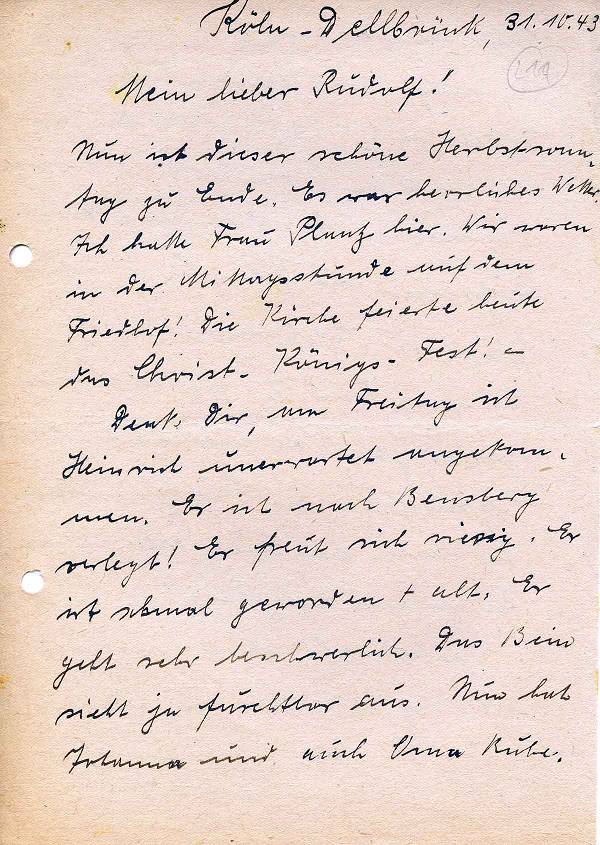 Köln-Dellbrück, 31.10.43
219
Mein lieber Rudolf!
Nun ist dieser schöne Herbstsonn-
tag zu Ende. Es war herrliches Wetter.
Ich hatte Frau Plantz hier. Wir waren
in der Mittagsstunde auf dem
Friedhof! Die Kirche feierte heute
das Christ-Königs-Fest! –
Denk Dir, am Freitag ist
Heinrich unerwartet angekom-
men. Er ist nach Bensberg
verlegt! Er freut sich riesig. Er
ist schmal geworden + alt. Er
geht sehr beschwerlich. Das Bein
sieht ja furchtbar aus. Nun hat
Johanna und auch Oma Ruhe.